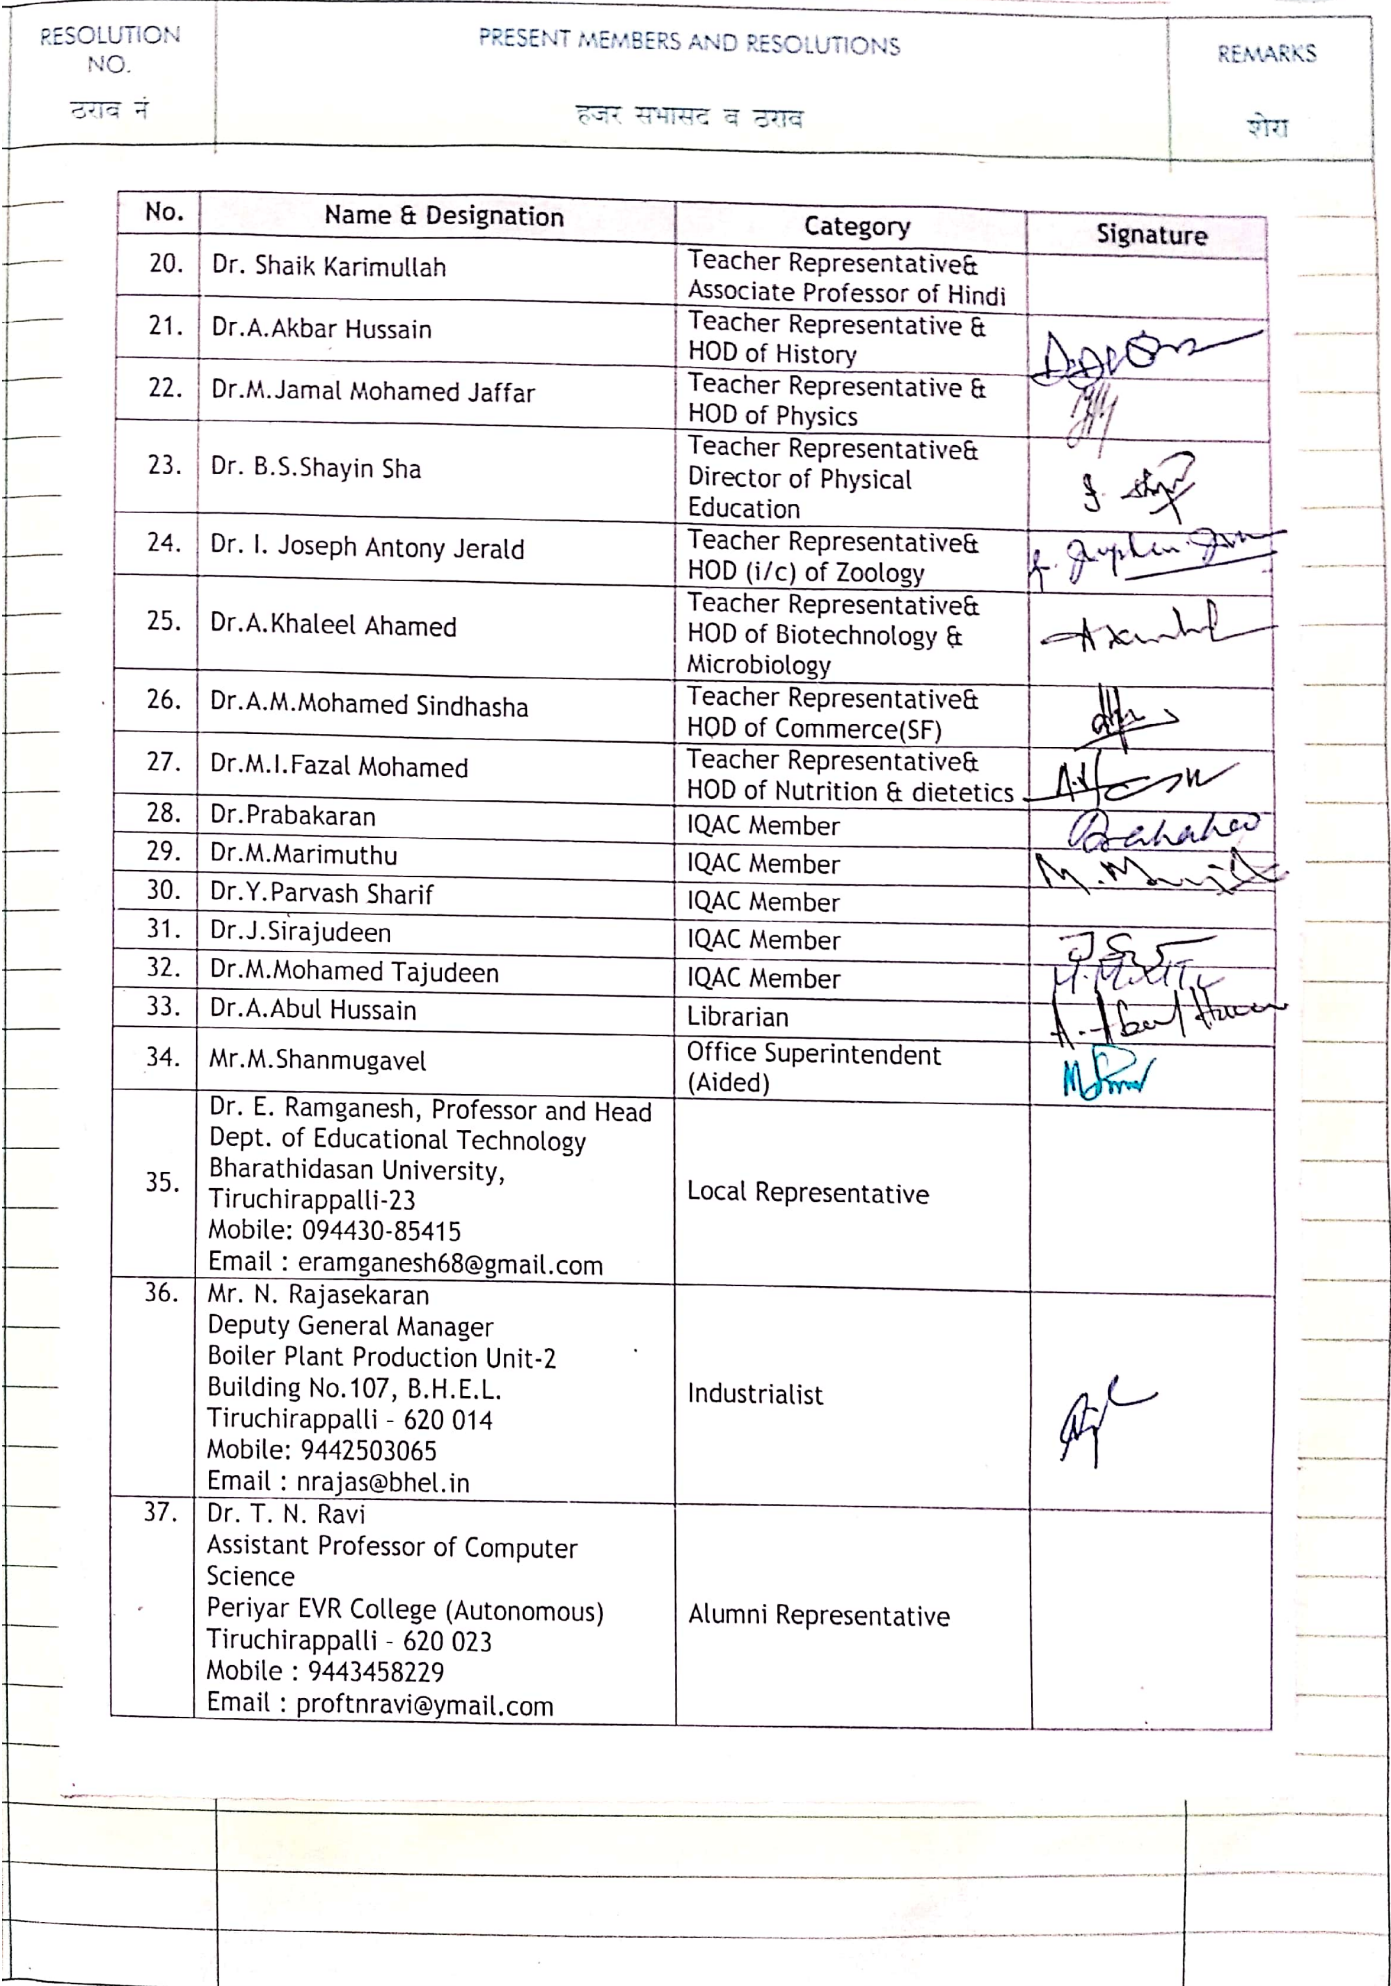 RESOLUTION
NO.
ठराव नं
PRESENT MEMBERS AND RESOLUTIONS
हजर सभासद व ठराव
REMARKS
शेरा
No.
Name & Designation
Category
Signature
20.
Dr. Shaik Karimullah
Teacher Representative&
Associate Professor of Hindi
21.
Dr.A.Akbar Hussain
Teacher Representative &
HOD of History
22.
Dr.M.Jamal Mohamed Jaffar
Teacher Representative &
HOD of Physics
23.
Dr. B.S.Shayin Sha
Teacher Representative&
Director of Physical
Education
24.
Dr. I. Joseph Antony Jerald
Teacher Representative&
HOD (i/c) of Zoology
25.
Dr.A.Khaleel Ahamed
Teacher Representative&
HOD of Biotechnology &
Microbiology
26.
Dr.A.M.Mohamed Sindhasha
Teacher Representative&
HOD of Commerce(SF)
27.
Dr.M.I.Fazal Mohamed
Teacher Representative&
HOD of Nutrition & dietetics
28.
Dr.Prabakaran
IQAC Member
29.
Dr.M.Marimuthu
IQAC Member
30.
Dr.Y.Parvash Sharif
IQAC Member
31.
Dr.J.Sirajudeen
IQAC Member
32.
Dr.M.Mohamed Tajudeen
IQAC Member
33.
Dr.A.Abul Hussain
Librarian
34.
Mr.M.Shanmugavel
Office Superintendent
(Aided)
35.
Dr. E. Ramganesh, Professor and Head
Dept. of Educational Technology
Bharathidasan University,
Tiruchirappalli-23
Mobile: 094430-85415
Email : eramganesh68@gmail.com
Local Representative
36.
Mr. N. Rajasekaran
Deputy General Manager
Boiler Plant Production Unit-2
Building No.107, B.H.E.L.
Tiruchirappalli - 620 014
Mobile: 9442503065
Email : nrajas@bhel.in
Industrialist
37.
Dr. T. N. Ravi
Assistant Professor of Computer
Science
Periyar EVR College (Autonomous)
Tiruchirappalli - 620 023
Mobile : 9443458229
Email : proftnravi@ymail.com
Alumni Representative